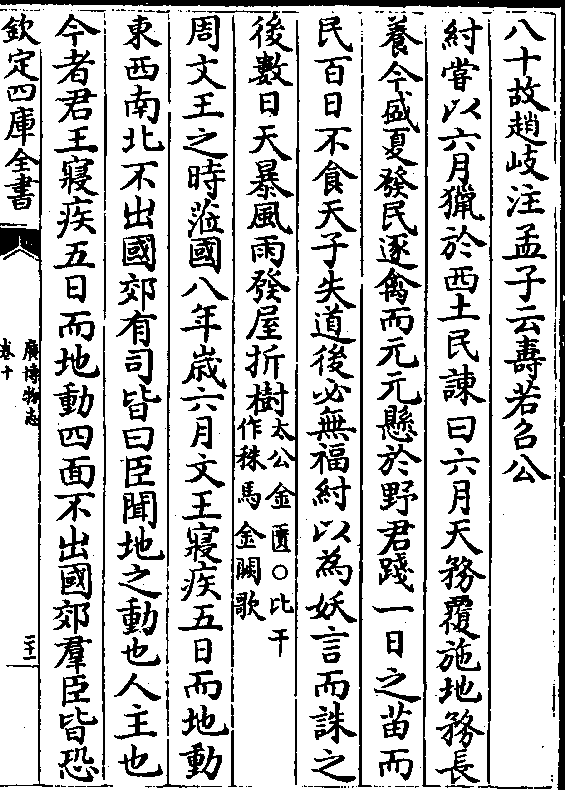 八十故趙岐注孟子云壽若召公
紂嘗以六月獵於西土民諫曰六月天務覆施地務長
養今盛夏發民逐禽而元元懸於野君踐一日之苗而
民百日不食天子失道後必無福紂以為妖言而誅之
後數日天暴風雨發屋折樹太公金匱○比干
作秣馬金闕歌
周文王之時涖國八年歲六月文王寢疾五日而地動
東西南北不出國郊有司皆曰臣聞地之動也人主也
今者君王寢疾五日而地動四面不出國郊羣臣皆恐
欽定四庫全書
廣博物志
卷十
二十二